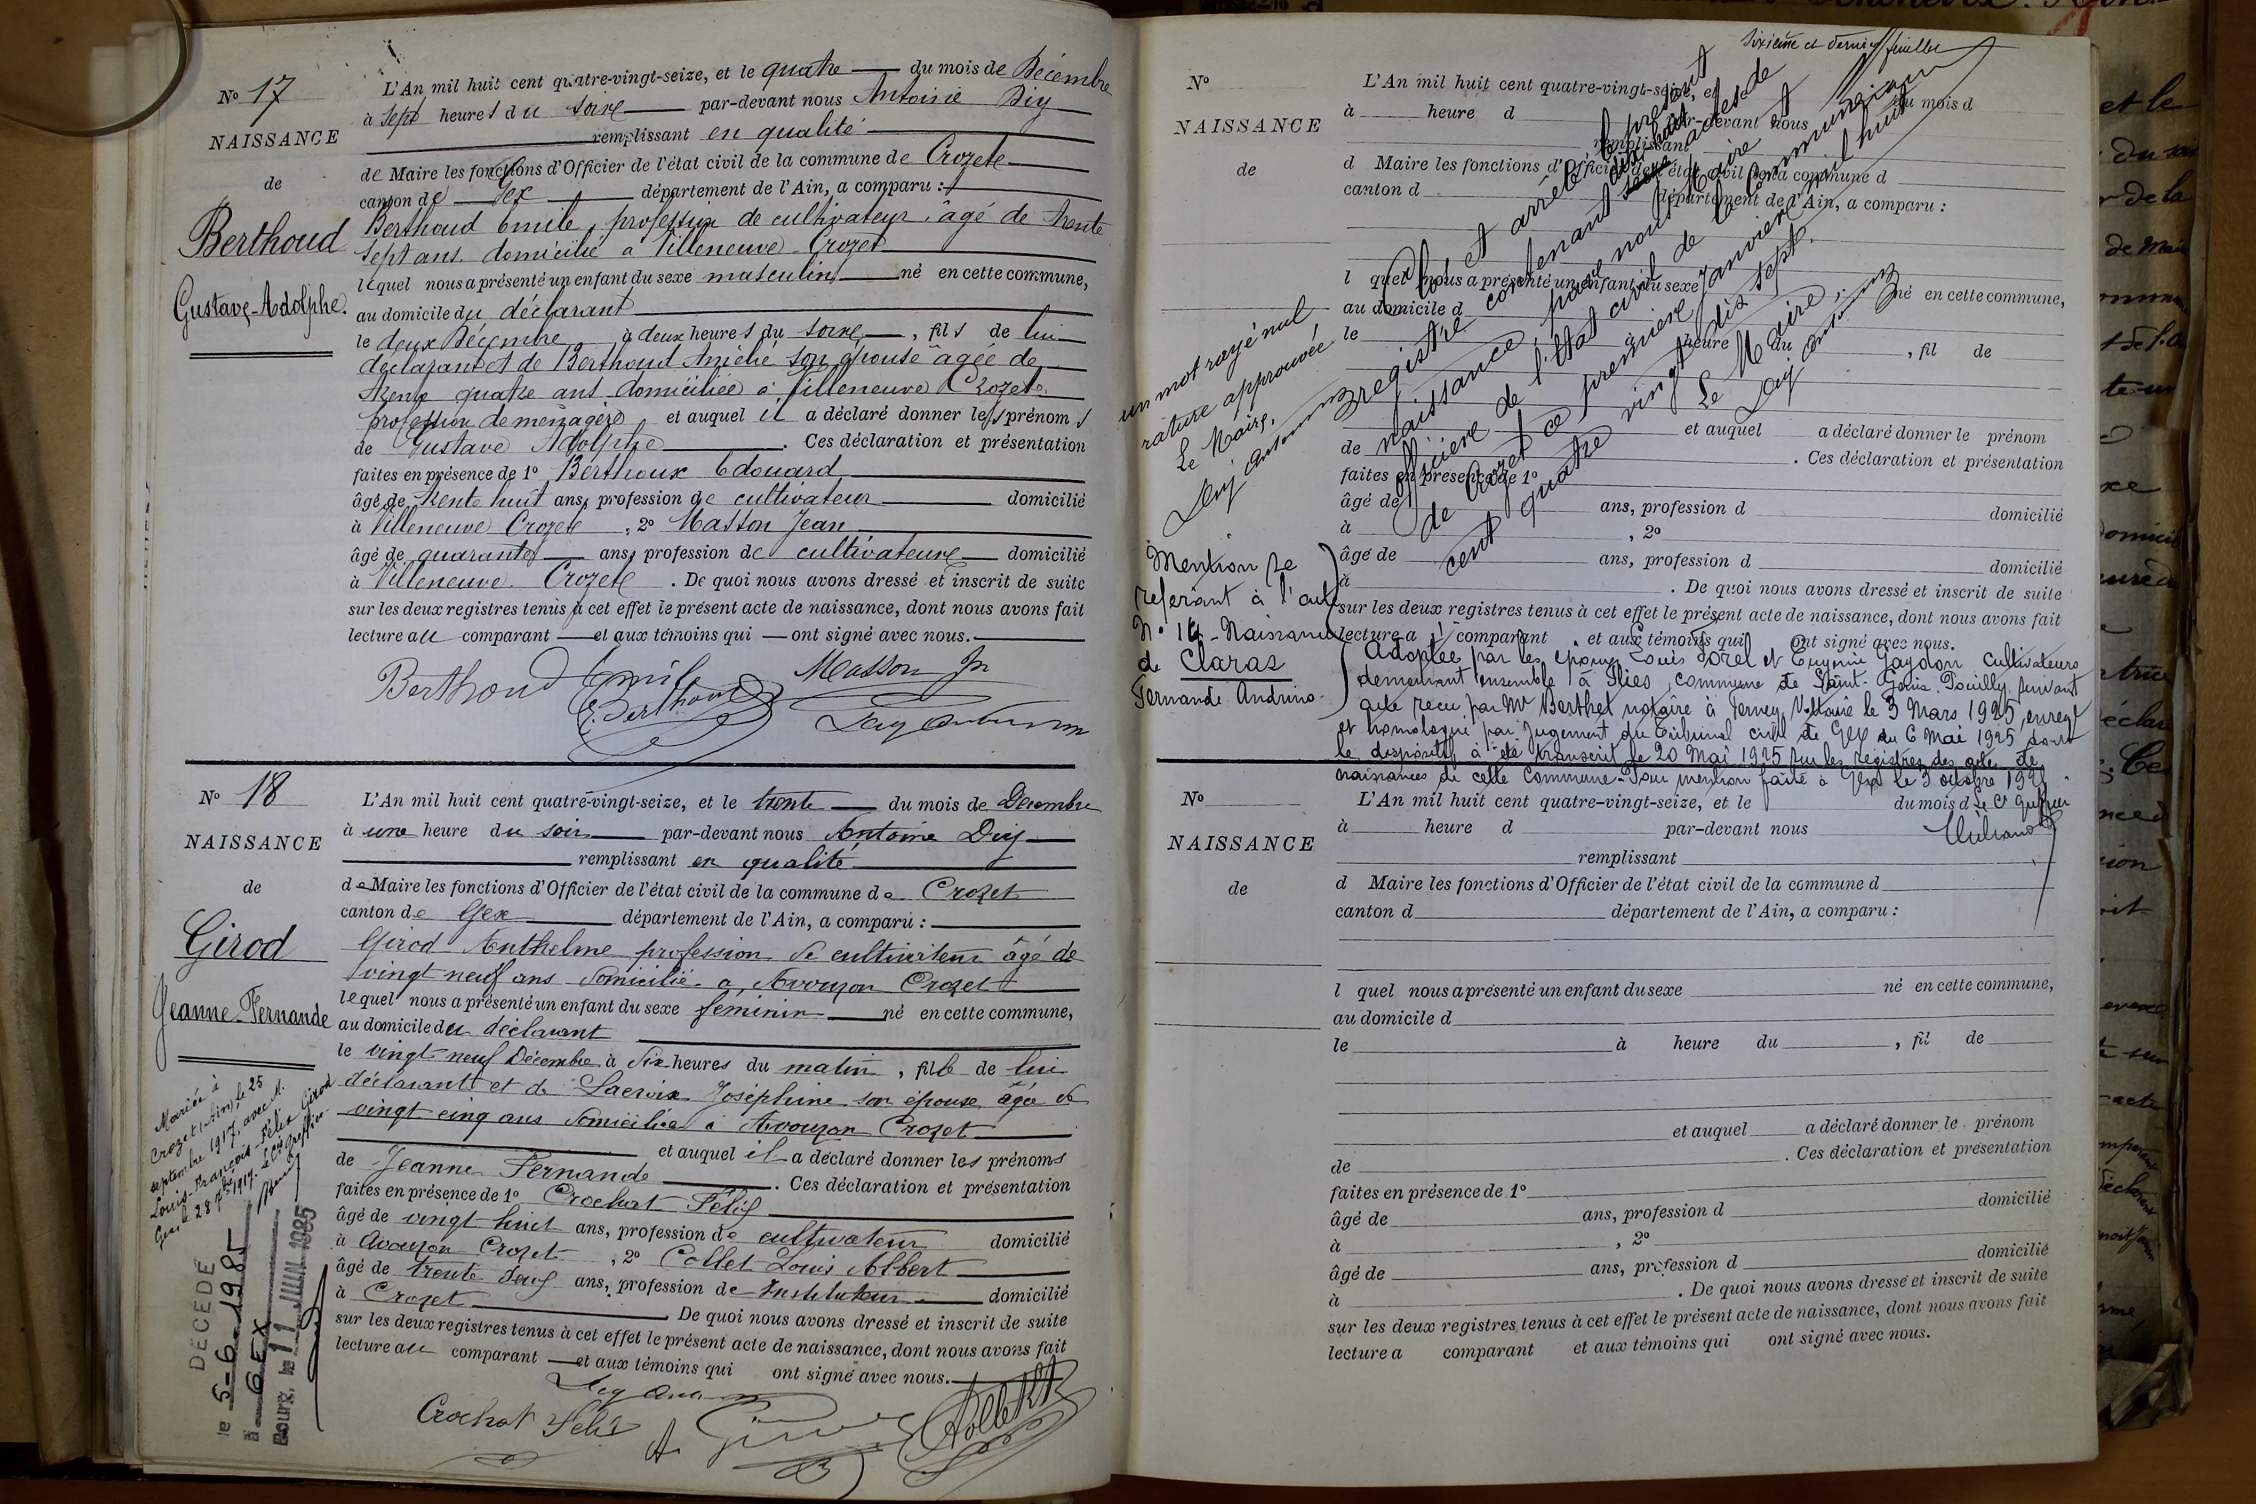 No 17
NAISSANCE
de
Berthoud
Gustave-Adolphe.
L'An mil huit cent quatre-vingt-seize, et le quatre du mois de Décembre
à sept heures du soir par-devant nous Antoine
remplissant en qualité
de Maire les fonctions d'Officier de l'état civil de la commune de Crozet
canton de Gex département de l'Ain, a comparu :
Berthoud Emile profession de cultivateur âgé de trente
sept ans domicilié a Villeneuve Crozet
lequel nous a présenté un enfant du sexe masculin né en cette commune,
au domicile du déclarant
le deux Décembre à deux heures du soir, fils de lui
déclarant et de Berthoud Amélie son épouse agée de
trente quatre ans domiciliée à Villeneuve Crozet
profession de menagère et auquel il a déclaré donner les prénoms
de Gustave Adolphe. Ces déclaration et présentation
faites en présence de 1º Berthoux Edouard
âgé de trente huit ans, profession de cultivateur domicilié
à Villeneuve Crozet, 2º Masson Jean
âgé de quarante ans, profession de cultivateur domicilié
à Villeneuve Crozet. De quoi nous avons dressé et inscrit de suite
sur les deux registres tenus à cet effet le présent acte de naissance, dont nous avons fait
lecture au comparant et aux témoins qui ont signé avec nous.
Berthoud Emile Masson Jn
E. Berthoud
No 18
NAISSANCE
de
Girod
Jeanne-Fernande
L'An mil huit cent quatre-vingt-seize, et le trente du mois de Décembre
à une heure du soir par-devant nous Antoine
remplissant en qualité
de Maire les fonctions d'Officier de l'état civil de la commune de Crozet
canton de Gex département de l'Ain, a comparu :
Girod Anthelme profession de cultivateur âgé de
vingt neuf ans domicilié a Avouzon Crozet
lequel nous a présenté un enfant du sexe féminin né en cette commune,
au domicile du déclarant
le vingt neuf Décembre à six heures du matin, fille de lui
déclarant et de Lacroix Joséphine son épouse âgée de
vingt cinq ans domiciliée à Avouzon Crozet
et auquel il a déclaré donner les prénoms
de Jeanne Fernande. Ces déclaration et présentation
faites en présence de 1º Crochat Félix
âgé de vingt huit ans, profession de cultivateur domicilié
à Avouzon Crozet, 2º Collet Louis Albert
âgé de trente ans, profession de Instituteur domicilié
à Crozet. De quoi nous avons dressé et inscrit de suite
sur les deux registres tenus à cet effet le présent acte de naissance, dont nous avons fait
lecture au comparant et aux témoins qui ont signé avec nous.
Crochat Félix
Mariée à
Crozet (Ain), le 25
septembre 1917, avec M.
Louis-François-Félix Girod
Gex le 28 7bre 1917. Le Cis Greffier
DÉCÉDÉ
le 5-6-1985
à GEX
Bourg, le 11 JUIN 1985
Sixième et dernier feuillet
No
NAISSANCE
de
L'An mil huit cent quatre-vingt-seize, et le du mois d
à heure d par-devant nous
remplissant
d Maire les fonctions d'Officier de l'état civil de la commune d
canton d département de l'Ain, a comparu :
l quel nous a présenté un enfant du sexe né en cette commune,
au domicile d
le à heure du, fil de
et auquel a déclaré donner le prénom
de. Ces déclaration et présentation
faites en présence de 1º
âgé de ans, profession d domicilié
à, 2º
âgé de ans, profession d domicilié
à. De quoi nous avons dressé et inscrit de suite
sur les deux registres tenus à cet effet le présent acte de naissance, dont nous avons fait
lecture a comparant et aux témoins qui ont signé avec nous.
Clos et arrêté le présent
registre contenant dix huit actes de
naissance, par nous Maire et
officier de l'état civil de la commune
de Crozet ce premier janvier mil huit
cent quatre vingt dix sept.
Le Maire,
un mot rayé nul
rature approuvée
Le Maire,
Mention se
referant à l'acte
No 14 - Naissance
de Claraz
Fernande Andrino
Adoptée par les époux Louis Morel et Eugénie Gaydon cultivateurs
demeurant ensemble à Flies, commune de Saint-Genis-Pouilly suivant
acte reçu par Me Berthet notaire à Ferney Voltaire le 3 Mars 1925, enregt
et homologué par Jugement du Tribunal civil de Gex du 6 Mai 1925 dont
le dispositif à été transcrit le 20 Mai 1925 sur les registres des actes de
naissances de cette Commune. Pour mention faite à Gex le 3 octobre
Le Cs Greffier
No
NAISSANCE
de
L'An mil huit cent quatre-vingt-seize, et le du mois d
à heure d par-devant nous
remplissant
d Maire les fonctions d'Officier de l'état civil de la commune d
canton d département de l'Ain, a comparu :
l quel nous a présenté un enfant du sexe né en cette commune,
au domicile d
le à heure du, fil de
et auquel a déclaré donner le prénom
de. Ces déclaration et présentation
faites en présence de 1º
âgé de ans, profession d domicilié
à, 2º
âgé de ans, profession d domicilié
à. De quoi nous avons dressé et inscrit de suite
sur les deux registres tenus à cet effet le présent acte de naissance, dont nous avons fait
lecture a comparant et aux témoins qui ont signé avec nous.